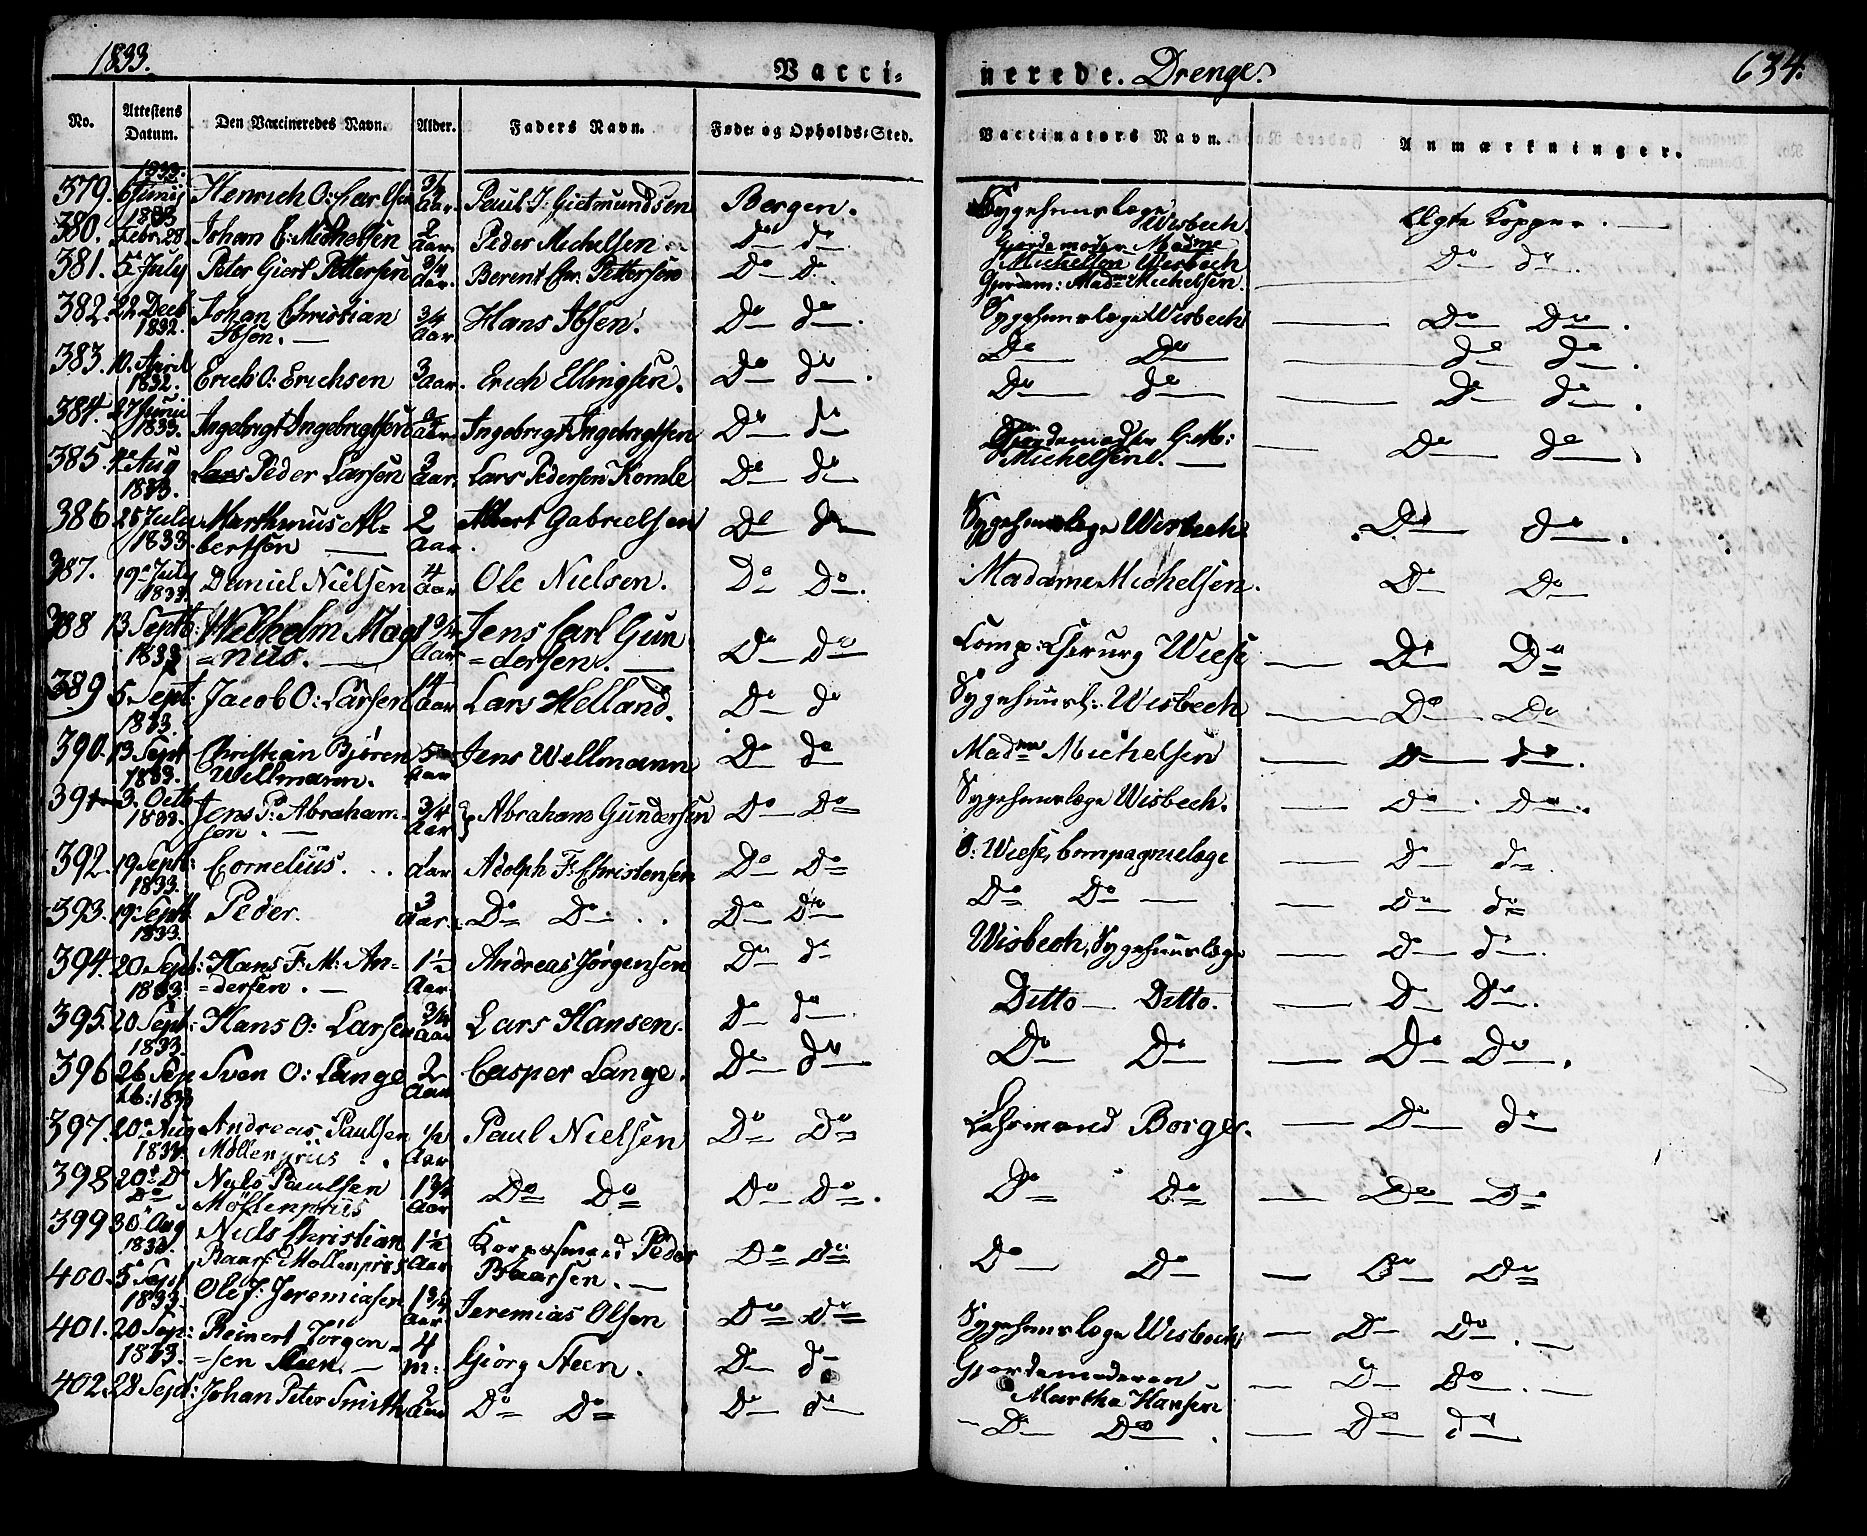 1833.
Vacci-
nerede. Drenge.
634.
No. Attestens Datum. Den Vaccineredes Navn. Alder. Faders Navn. Føde- og Opholds-Sted. Vaccinators Navn. Anmærkninger.
1833.
379. 6 Junij Henrich O: Carlsen 3/4 Aar. Paul J: Giermundsen Bergen. Sygehuuslæge Wisbech Ægte Kopper.
1833
380. Febr. 28 Johan C: Michelsen Aar. Peder Michelsen Do do Gjordemoder Madme Michelsen Wisbech Do do.
381. 5 July Peter Giert Pettersen 3/4 Aar. Berent Chr. Pettersen Do D. Gjordem: Madme Michelsen.
382. 22 Decb 1832. Johan Christian Ibsen. 3/4 Aar Hans Ibsen. Do do. Sygehuuslæge Wisbech Do Do.
383. 10. April 1832. Erich O: Erichsen 3 Aar. Erich Ellingsen. Do do. Do Do do do.
Do do Do do.
384. 27 Juni 1833. Ingebrigt Ingebrigtsen Aar. Ingebrigt Ingebrigtsen Do do
385. Aug 1833. Lars Peder Larsen 3 Aar. Lars Pedersen Komle Do do Gjordemoder G. M: Michelsen. Do do.
386 25 July 1833. Marthinus Albertsen 2 Aar. Albert Gabrielsen Do do Sygehuuslæge Wisbech Do do.
387. 19 July 1833. Daniel Nielsen 4 Aar Ole Nielsen. Do Do. Madame Michelsen. Do Do
388 13 Septb: 1833 Wilhelm Mag=nus. 1 3/4 Aar Jens Carl Gun=dersen. Do Do Comp: Chirurg Wiese Do Do
389 5 Sept: 1833. Jacob O: Larsen 14 Aar Lars Helland. Do do Sygehuusl: Wisbech Do Do
390. 13 Sept 1833. Christian Bjøren Wellmann. Aar Jens Wellmann Do do Madme Michelsen do do.
391 3. Octb 1833. Jens P: Abrahamsen. 3/4 Aar Abraham Gundersen Do Do Sygehuuslæge Wisbech. Do. Do.
392. 19 Sept: 1833. Cornelius. Aar Adolph F: Christensen Do Do O: Wiese, Compagnielæge Do do.
393. 19 Septb 1833. Peder. 3 Aar. Do Do. Do Do Do Do Do do
394. 20 Sept: 1833. Hans F: M: An=dersen. 1½ Aar. Andreas Jørgensen Do do Wisbech, Sygehuuslæge Do do.
395. 20 Sept: 1833. Hans O: Larsen 3/4 Aar Lars Hansen. Do do. Ditto Ditto. Do Do.
396 26 Sep 1833 Sven O: Lange 2 Aar Casper Lange. Do do Do Do Do Do.
397. 20 Aug 1833. Andreas Paulsen Møllenpriis. ½ Aar Paul Nielsen Do Do Lehnsmand Borge. Do do
398 20 Do Do Nels Paulsen Møllenpriis 1 3/4 Aar Do Do Do Do. Do Do Do Do
399 30 Aug 1833. Niels Christian Baars: Møllenpriis 1½ Aar Korpesmand Peder Baarsen. Do Do Do Do Do Do
400. 5 Sept 1833. Ole J: Jeremiasen 1 3/4 Aar Jeremias Olsen Do Do Sygehuuslæge Wisbech Do Do.
401. 20 Sep: 1833. Reinert Jørgen=sen Steen. 4 m: Giörg Steen. Do do Gjordemoderen Martha Hansen Do Do.
402. 28 Sept: Johan Peter Smith 2 Aar Do Do Do do Do Do. Do do